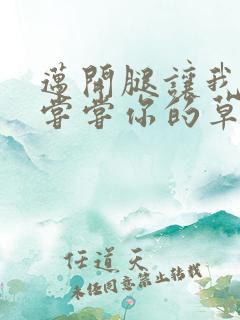 邁開腿讓我
嘗嘗你的草
任道天
未任同意禁止轉載